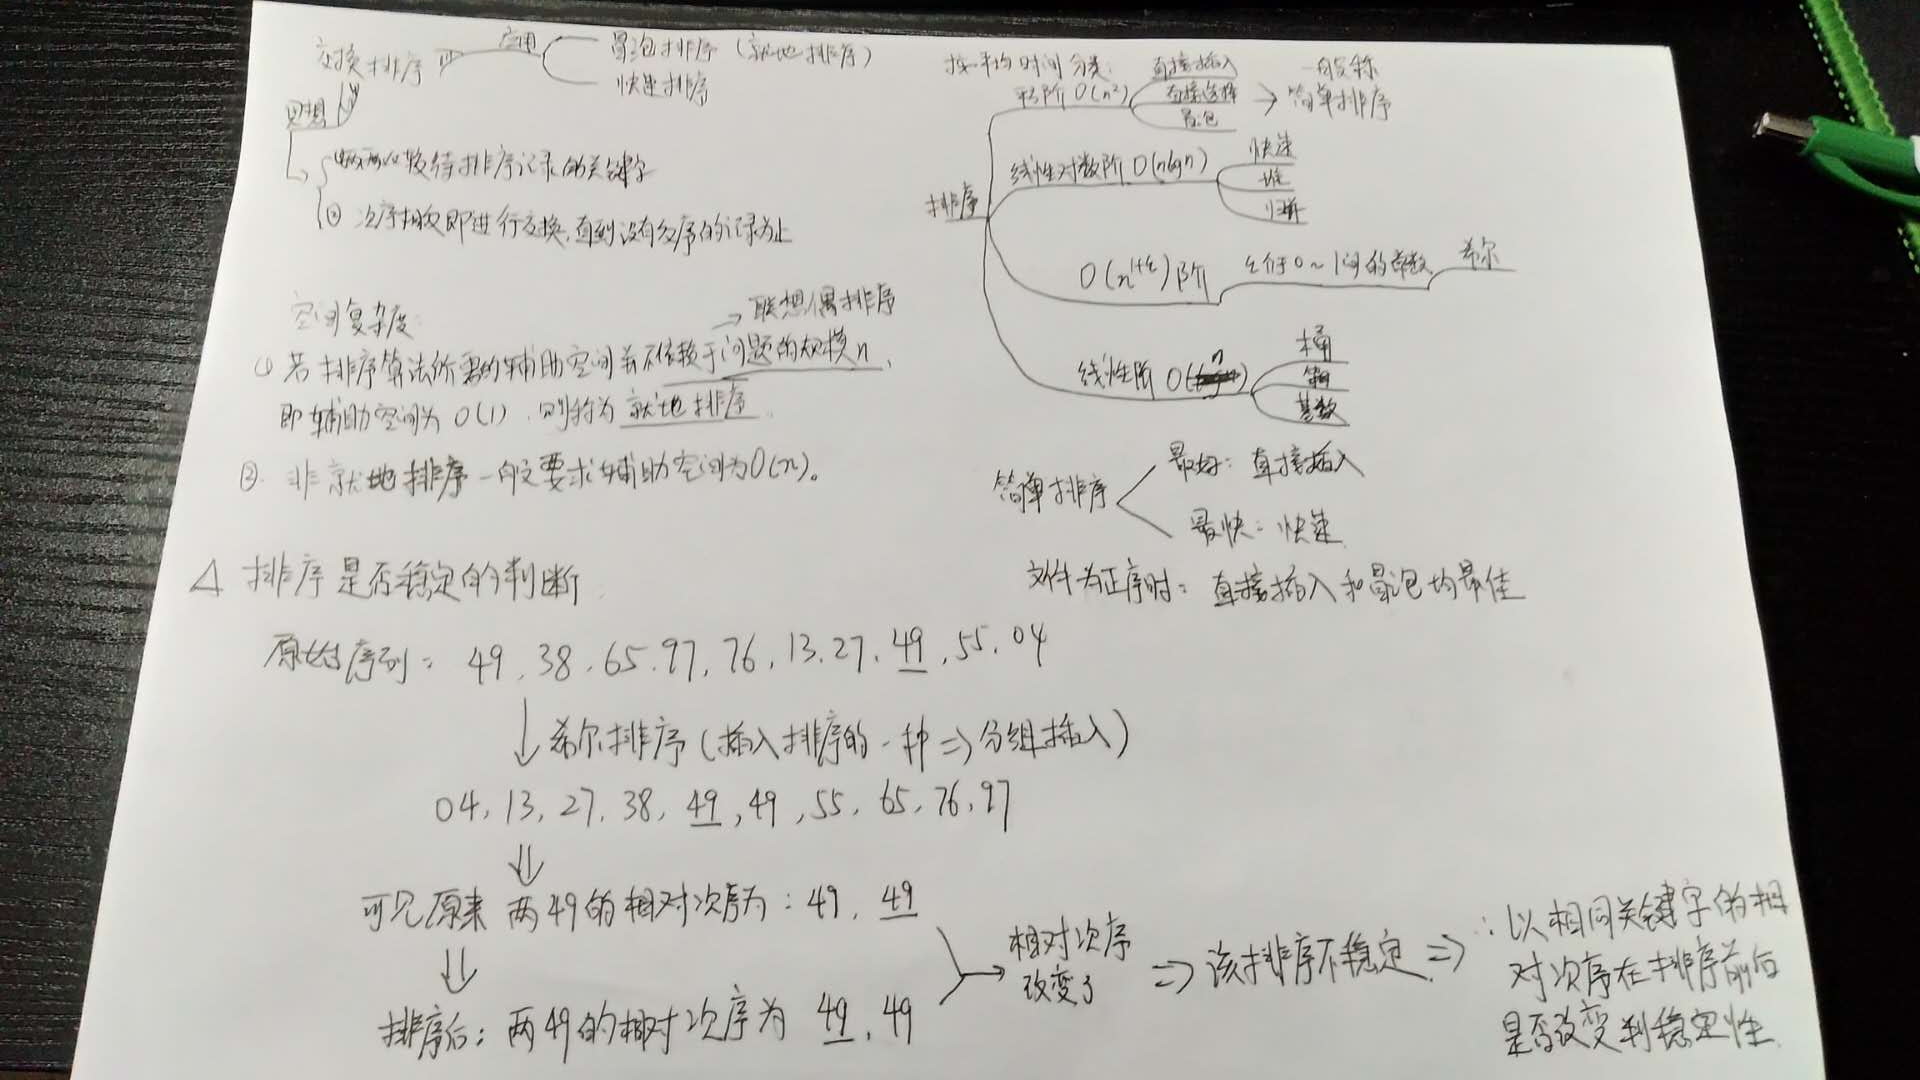 交换排序 应用 冒泡排序（就地排序）
快速排序
思想
两两比较待排序记录的关键字
② 次序相反即进行交换，直到没有反序的记录为止
空间复杂度
→ 联想偶排序
① 若排序算法所需的辅助空间并不依赖于问题的规模n，
即辅助空间为 O(1)，则称为 就地排序。
② 非就地排序一般要求辅助空间为O(n)。
按平均时间分类：
排序
平方阶 O(n²) 直接插入
直接选择
冒泡
→ 一般称
简单排序
线性对数阶 O(nlgn) 快速
堆
归并
O(n^(1+ε))阶 ε介于0~1间的常数 希尔
线性阶 O(n) 桶
箱
基数
简单排序 最好：直接插入
最快：快速
文件为正序时：直接插入和冒泡均最佳
△ 排序是否稳定的判断
原始序列：49, 38, 65, 97, 76, 13, 27, 49, 55, 04
↓希尔排序（插入排序的一种⇒分组插入）
04, 13, 27, 38, 49, 49, 55, 65, 76, 97
⇓
可见原来两49的相对次序为：49, 49
⇓
排序后：两49的相对次序为 49, 49
相对次序
改变了
⇒ 该排序不稳定 ⇒
∴以相同关键字的相
对次序在排序前后
是否改变判稳定性